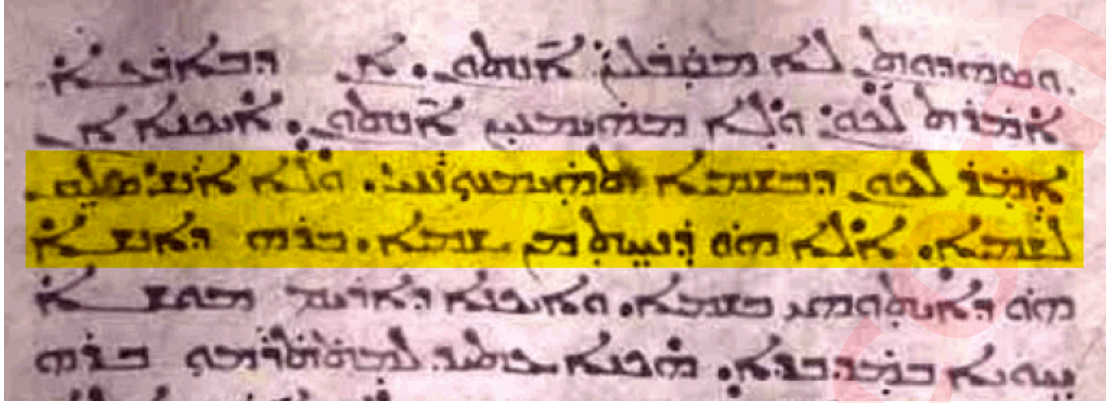 ܘܣܗܕܘܬܢ ܠܐ ܡܩܒܠܝܢ ܐܢܬܘܢ. ܐܢ ܕܒܐܪܥܐ
ܐܡܪܬ ܠܟܘܢ ܘܠܐ ܡܗܝܡܢܝܢ ܐܢܬܘܢ. ܐܝܟܢܐ ܐܢ
ܐܡܪ ܠܟܘܢ ܕܒܫܡܝܐ ܬܗܝܡܢܘܢܢܝ. ܘܠܐ ܐܢܫ ܣܠܩ
ܠܫܡܝܐ. ܐܠܐ ܗܘ ܕܢܚܬ ܡܢ ܫܡܝܐ. ܒܪܗ ܕܐܢܫܐ
ܗܘ ܕܐܝܬܘܗܝ ܒܫܡܝܐ. ܘܐܝܟܢܐ ܕܐܪܝܡ ܡܘܫܐ
ܚܘܝܐ ܒܡܕܒܪܐ. ܗܟܢܐ ܥܬܝܕ ܠܡܬܬܪܡܘ ܒܪܗ